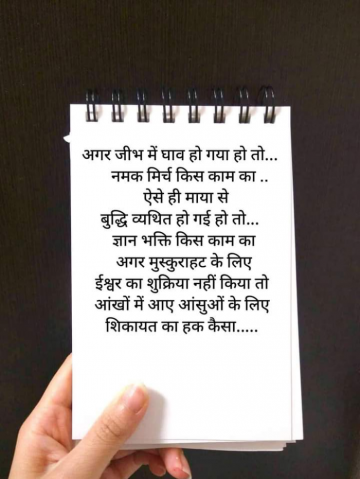 अगर जीभ में घाव हो गया हो तो...
नमक मिर्च किस काम का ..
ऐसे ही माया से
बुद्धि व्यथित हो गई हो तो...
ज्ञान भक्ति किस काम का
अगर मुस्कुराहट के लिए
ईश्वर का शुक्रिया नहीं किया तो
आंखों में आए आंसुओं के लिए
शिकायत का हक कैसा.....